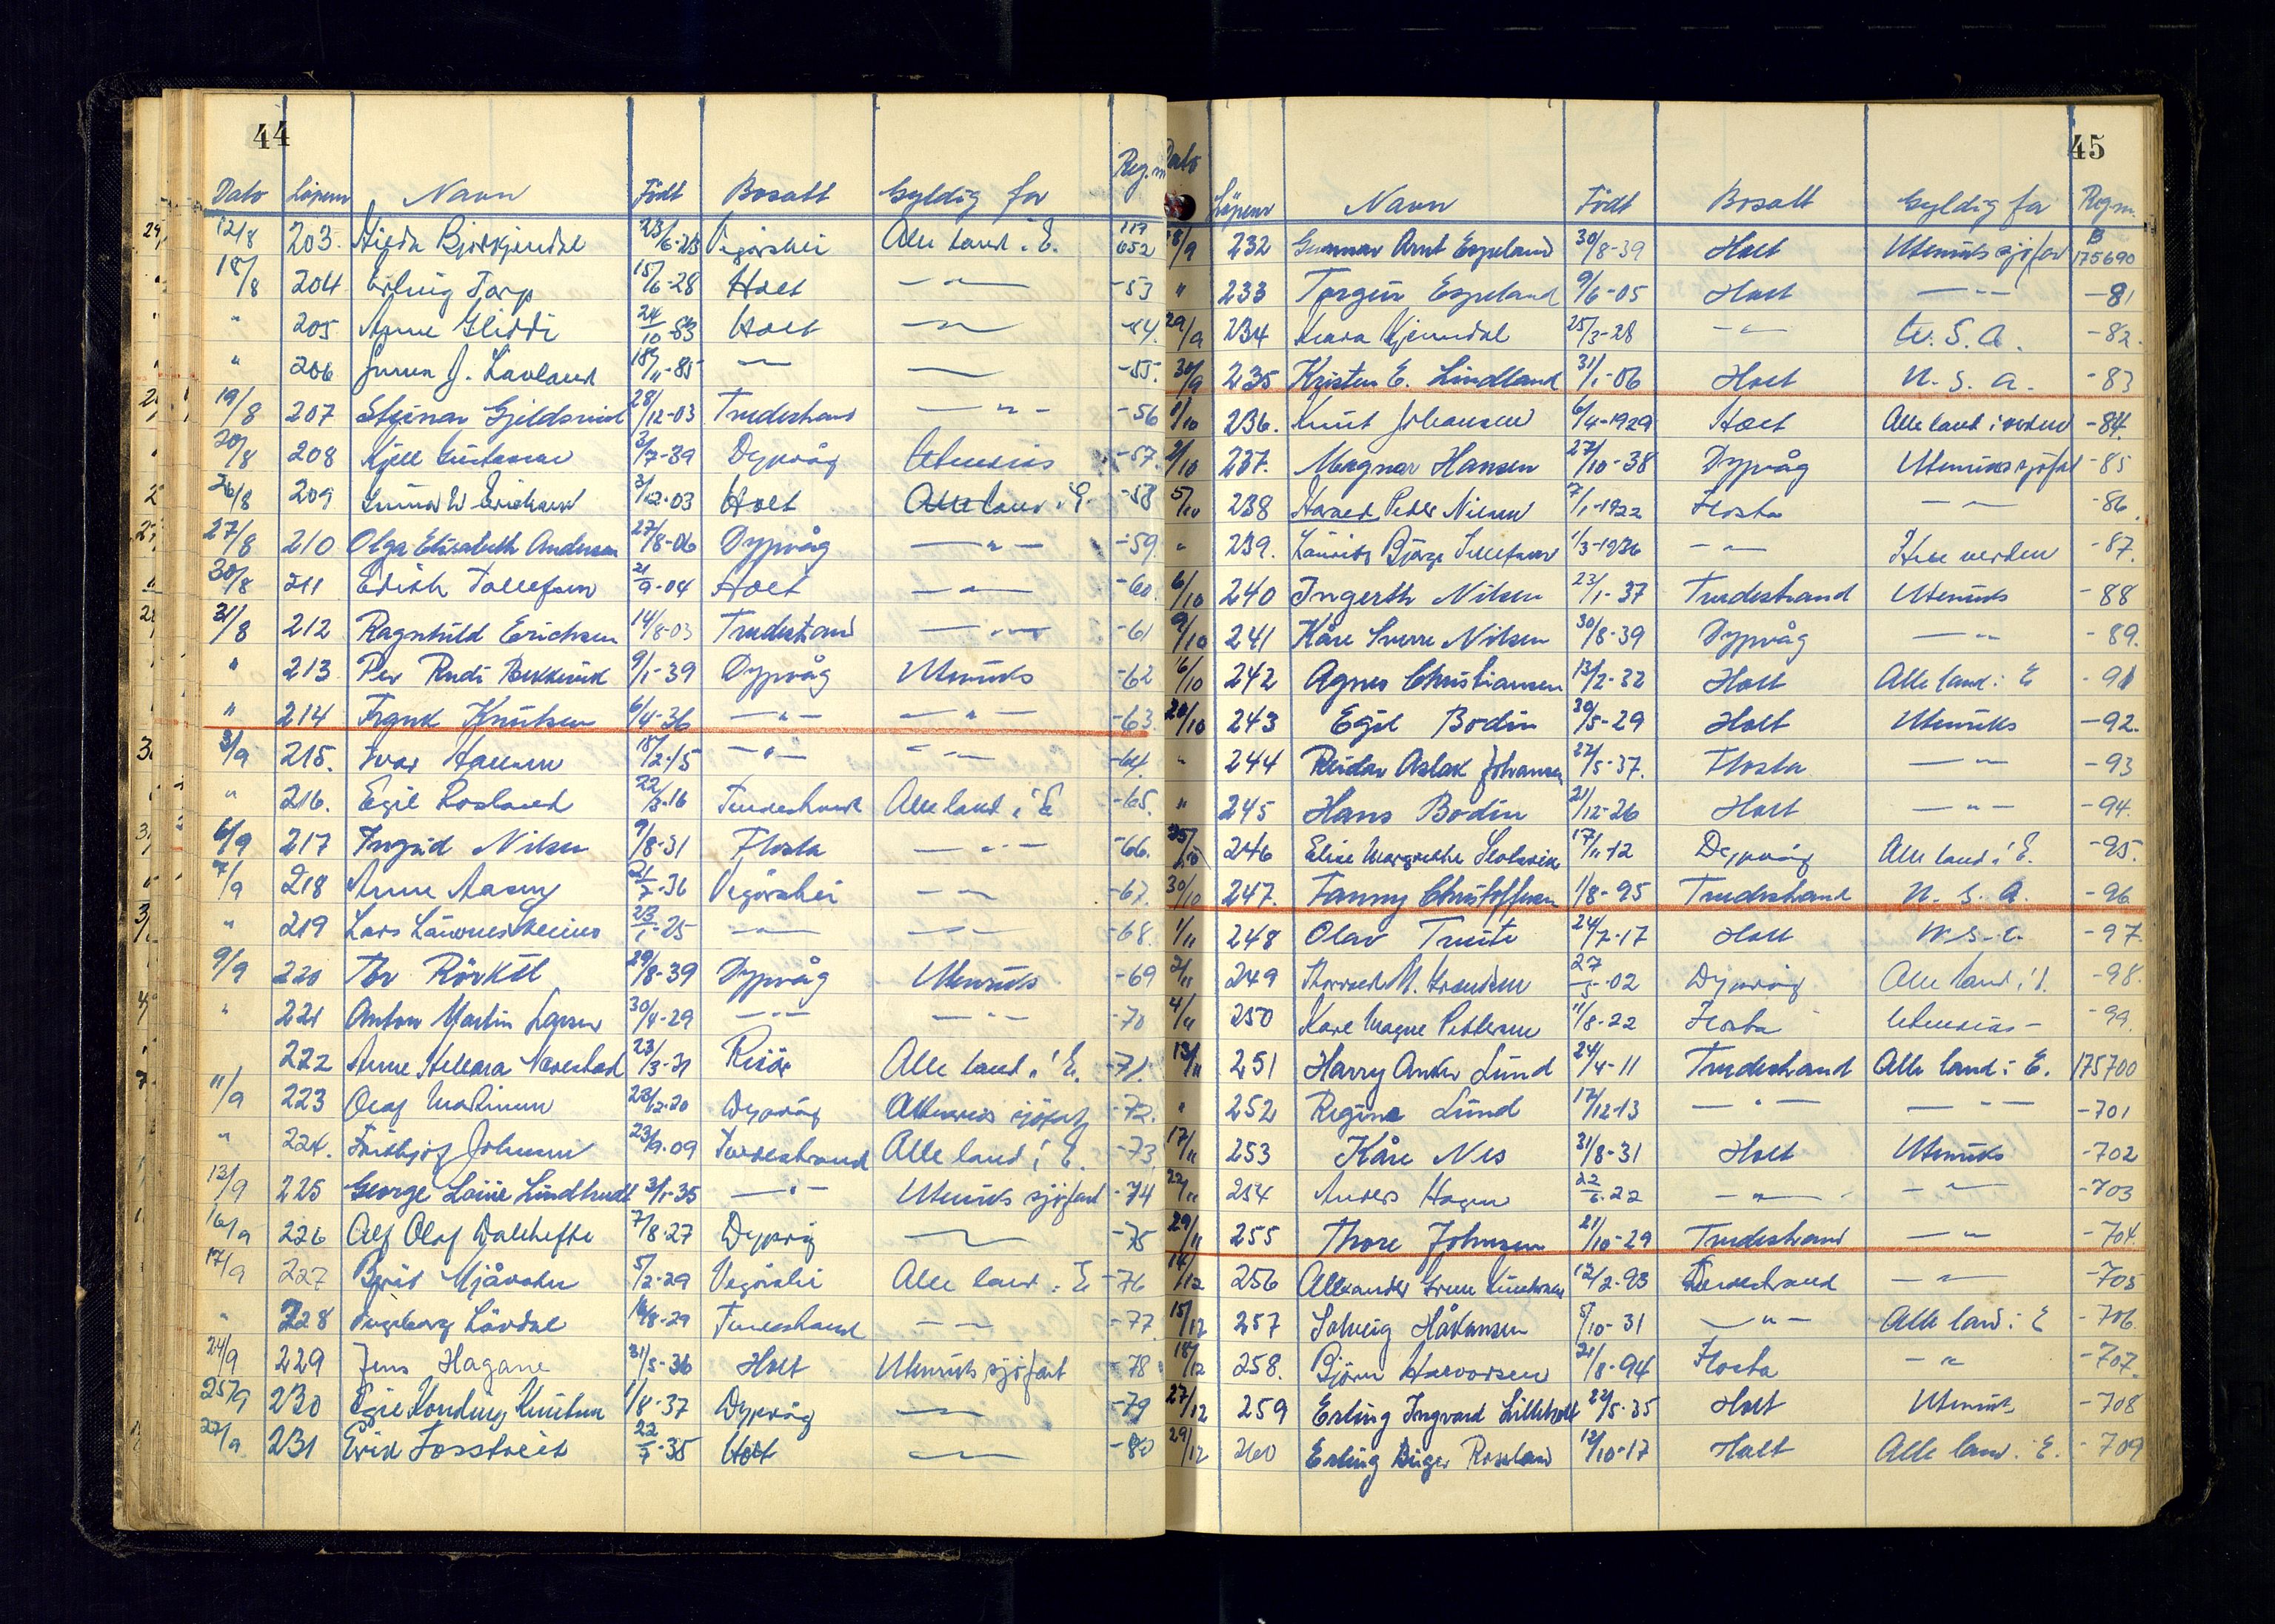 44
Dato Löpenr Navn Födt Bosatt Gyldig for Reg.nr
12/8 203. Bjorkjendal 23/6-23 Vegårshei Alle land i E. 652
18/8 204 Erling Torp 15/6-28 Holt — " — -53
" 205 Anne 24/10-83 Holt — " — -54.
" 206 J. Lavland 18/11-85 — " — — -55.
19/8 207 28/12-03 Tvedestrand — " — -56
20/8 208 Kjell Gustavsen 3/7-39 Dypvåg Utenriks -57.
26/8 209 3/12-03 Holt Alle land i E. -58
27/8 210 Olga Elisabeth Andersen 27/8-06 Dypvåg — " — -59.
30/8 211 Edith Tollefsen 21/9-04 Holt — " — -60.
31/8 212 Ragnhild Erichsen 14/8-03 Tvedestrand — " — -61
" 213 Per Rudi 9/1-39 Dypvåg Utenriks -62
" 214 Frank Knutsen 6/4-36 — " — — " — -63.
3/9 215. Ivar Hansen 18/2-15 — " — — " — -64.
" 216. Egil Rosland 22/3-16 Tvedestrand Alle land i E -65.
6/9 217 Ingrid Nilsen 9/8-31 Flosta — " — -66.
7/9 218 Anne Aasen 21/7-36 Vegårshei — " — -67.
" 219 Lars 23/1-25 — " — — " — -68.
9/9 220 Tor Rörkil 29/8-39 Dypvåg Utenriks -69
" 221 Anton Martin Larsen 30/4-29 — " — — " — -70
222 Anne 23/3-31 Risör Alle land i E. -71.
11/9 223 Olaf 23/2-20 Dypvåg sjöfart -72.
" 224. Fridtjof Johnsen 23/9-09 Tvedestrand Alle land i E. -73.
13/9 225 George 3/1-35 — " — Utenriks sjöfart -74
16/9 226 Alf Olaf Dalehefte 7/8-27 Dypvåg — " — -75
17/9 227 Berit Mjåvatn 5/2-29 Vegårshei Alle land i E -76
" 228 Ingeborg Lövdal 16/8-29 Tvedestrand — " — -77.
24/9 229 Jens Hagane 31/5-36 Holt Utenriks sjöfart -78
25/9 230 Knutsen 1/8-37 Dypvåg — " — -79
27/9 231 Erik Fosstveit 22/5-35 Holt — " — -80
45
Dato Löpenr Navn Födt Bosatt Gyldig for Reg.nr.
232 Gunnar Arnt Espeland 30/8-39 Holt Utenriks sjöfart B 175690
" 233 Torgen Espeland 9/6-05 Holt — " — -81
29/9 234 Kjendal 25/3-28 — " — U.S.A. -82.
30/9 235 Kristen E. Lindland 31/1-06 Holt U.S.A. -83
1/10 236. Knut Johansen 6/4-1929 Holt Alle land i verden -84.
2/10 237. Magnar Hansen 27/10-38 Dypvåg Utenriks sjöfart -85
5/10 238 Peder Nilsen 7/1-1922 Flosta — " — -86.
" 239. Tellefsen 1/3-1936 — " — Hele verden -87.
6/10 240 Ingerth Nilsen 23/1-37 Tvedestrand Utenriks -88
9/10 241 Kåre Sverre Nilsen 30/8-39 Dypvåg — " — -89.
16/10 242 Agnes Christiansen 13/2-32 Holt Alle land i E -91
20/10 243 Egil Bodin 30/5-29 Holt Utenriks -92.
" 244 Reidar Aslak Johansen 27/5-37. Flosta — " — -93
" 245 Hans Bodin 21/12-26 Holt — " — -94.
25/10 246 Elise Margrethe 17/11-12 Dypvåg Alle land i E. -95.
30/10 247. Fanny Christoffersen 1/8-95 Tvedestrand U.S.A. -96
1/11 248 Olav Tveite 24/7-17 Holt U.S.A. -97.
2/11 249 M. 27/5-02 Dypvåg Alle land i E. -98.
4/11 250 Kåre Magne Pettersen 11/8-22 Flosta Utenriks -99.
13/11 251 Harry Anker Lund 24/4-11 Tvedestrand Alle land i E. 175700
" 252 Regine Lund 17/12-13 — " — — " — -701
17/11 253 Kåre Nes 31/8-31 Holt Utenriks -702
22/11 254 Anders Hagen 22/6-22 — " — — " — -703
29/11 255 Thore Johnsen 21/10-29 Tvedestrand — " — -704.
14/12 256 Alexander 12/2-93 Tvedestrand — " — -705
15/12 257 Solveig Håkonsen 5/10-31 — " — Alle land i E -706.
18/12 258. Björn Halvorsen 21/8-94 Flosta — " -707.
27/12 259 Erling Ingvard Lilleholt 22/5-35 Holt Utenriks -708
29/12 260 Erling Birger Rosland 12/10-17 Holt Alle land i E. -709